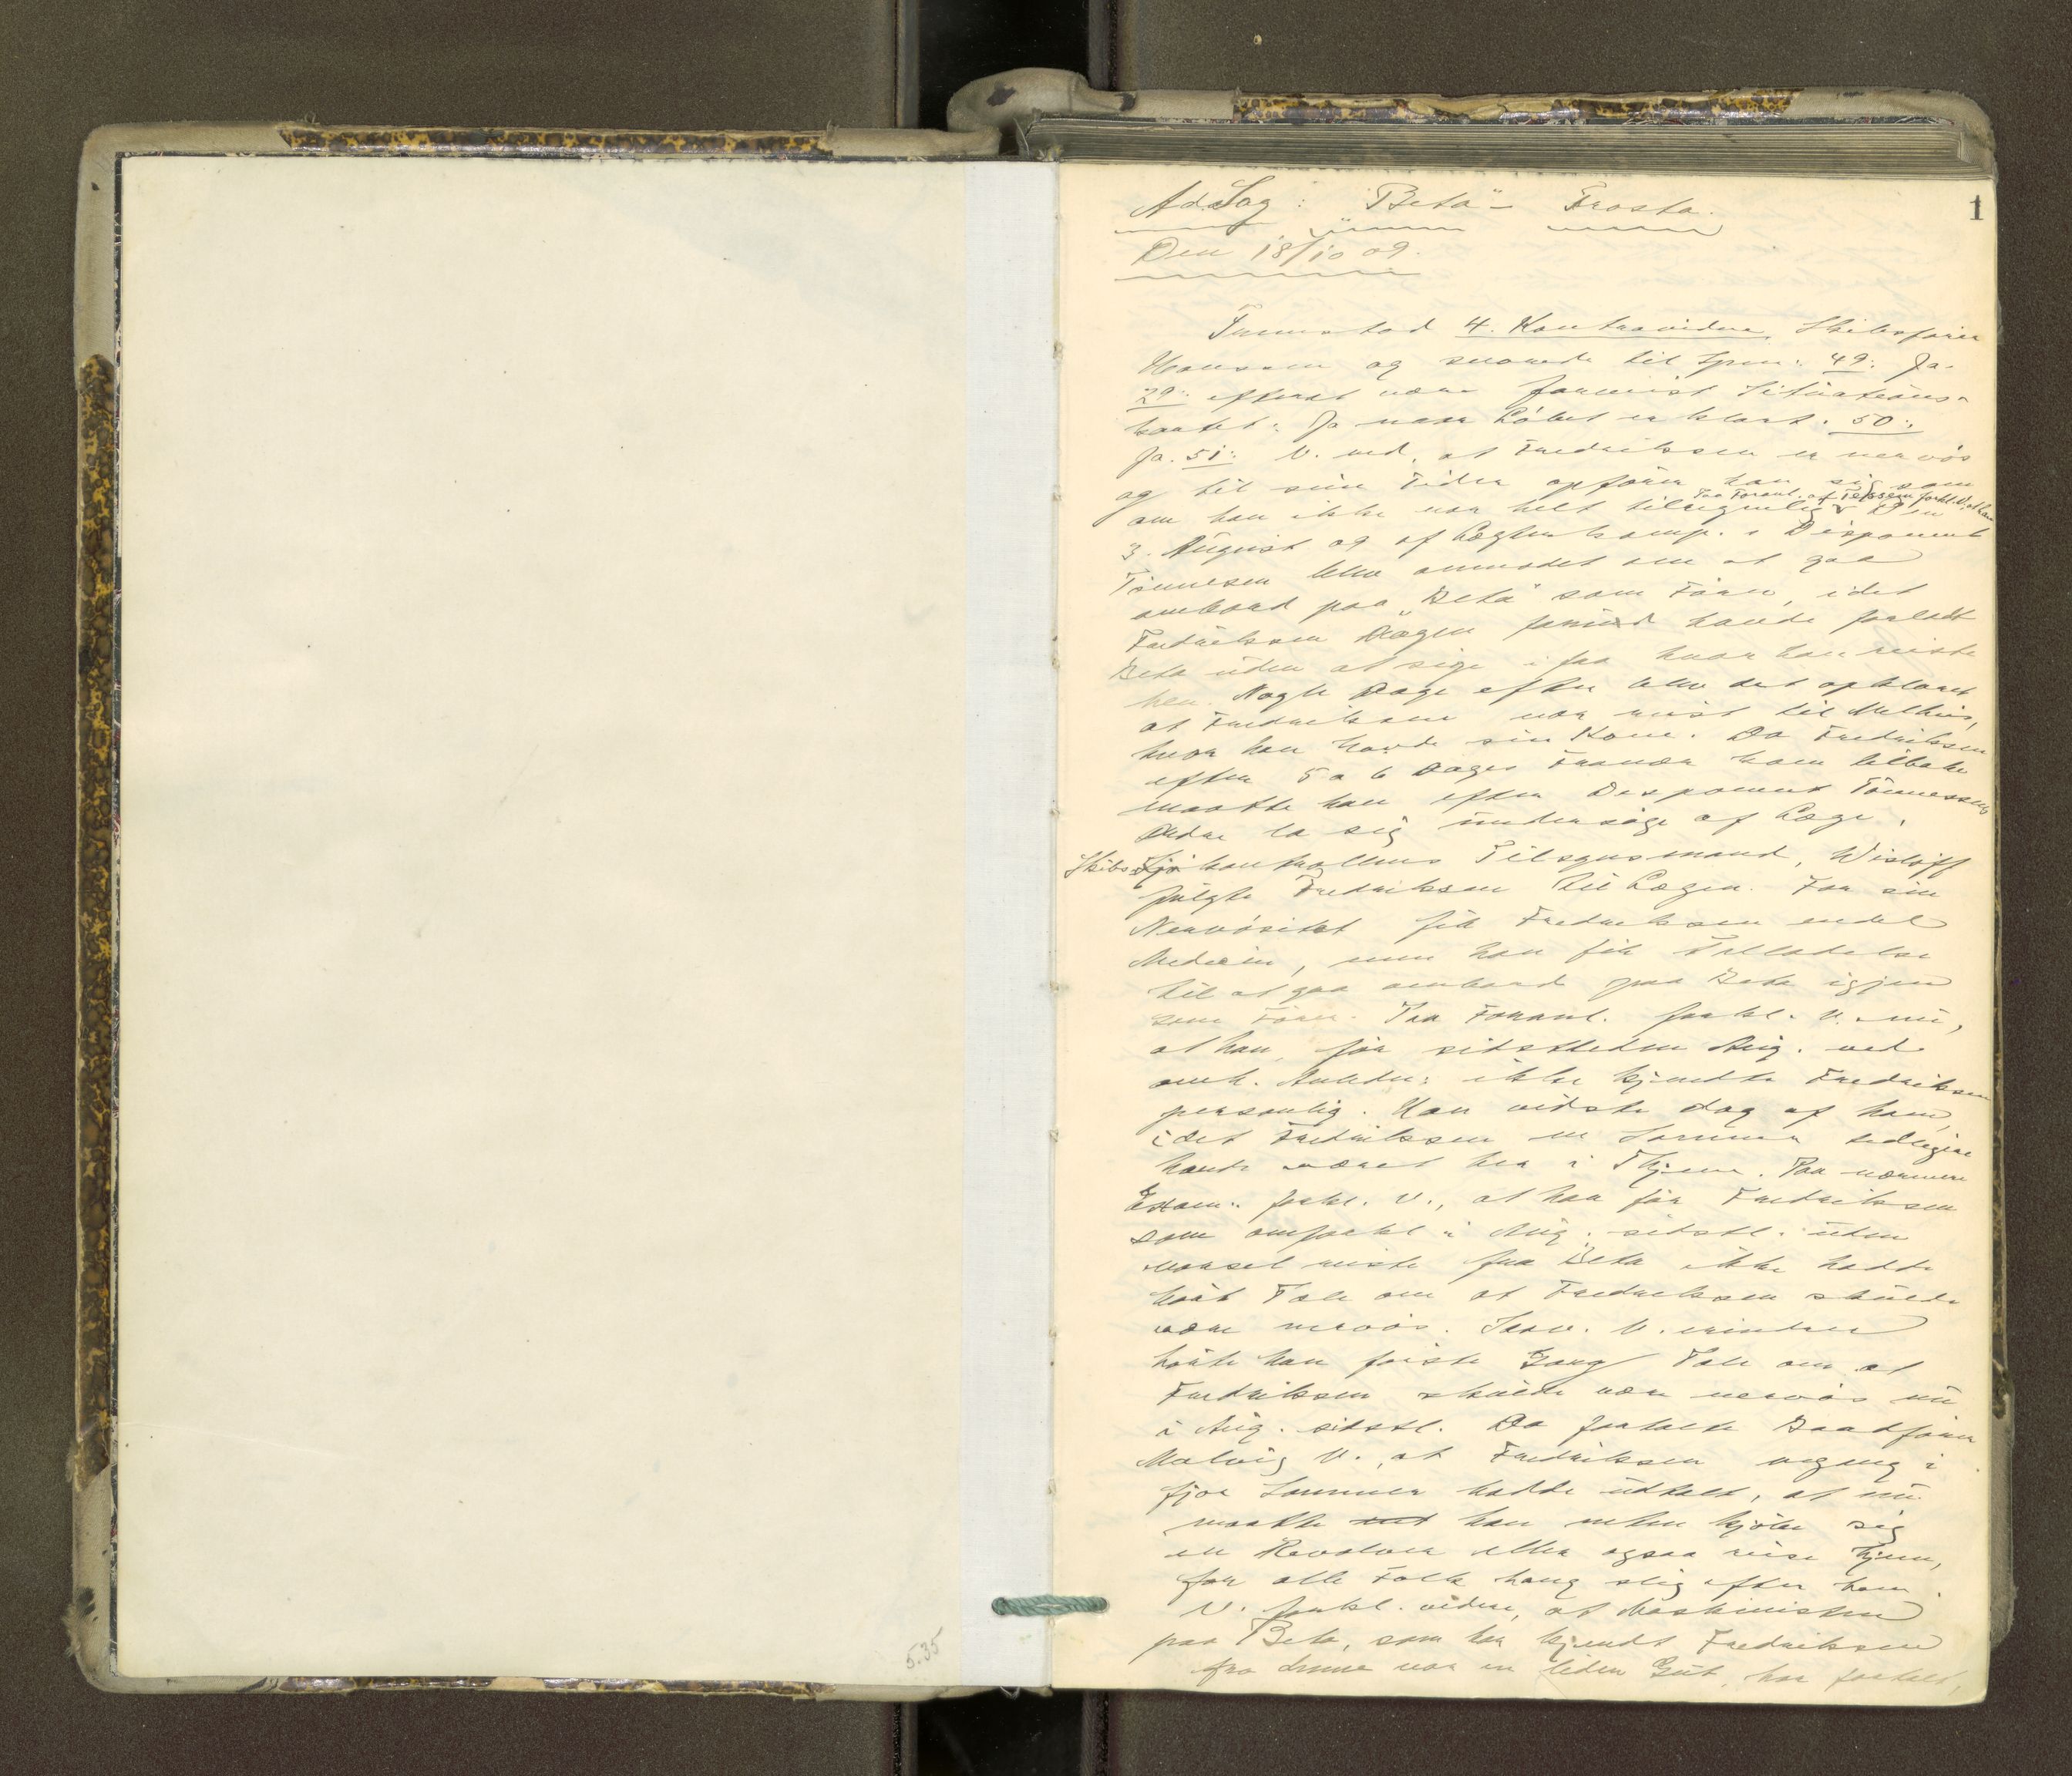 1
Ad Sag: "Beta" - Frosta.
Den 18/10 09.
Fremstod 4. Kontravidne, Skibsfører
Hanssen og svarede til Spm: 49: Ja.
29: efterat være forevist Situations-
kartet: Ja naar Løbet er klart. 50:
Ja. 51: V. ved, at Fredriksen er nervøs
og til sine Tider opfører han sig som
om han ikke var helt tilregnelig. Den
Paa Foranl. af Tessem forkl. V. at han
3. August 09 af Disponent
Tønnesen blev anmodet om at gaa
ombord paa "Beta" som Fører, idet
Fredriksen Dagen forud havde forladt
Beta uden at sige ifra hvor han reiste
hen. Nogle Dage efter blev det opklaret
at Fredriksen var reist til Melhus,
hvor han havde sin Kone. Da Fredriksen
efter 5 a 6 Dages Fravær kom tilbake
maatte han efter Disponent Tønnessens
Ordre la sig undersøge af Læge.
Skibs kontrollens Tilsynsmand, Wisløff
fulgte Fredriksen til Lægen. For sin
Nervøsitet fik Fredriksen endel
Medicin, men han fik Tilladelse
til at gaa ombord paa Beta igjen
som Fører. Paa Foranl. forkl. V. nu,
at han før sidstleden Aug. ved
omh. Anledn. ikke kjendte Fredriksen
personlig. Han vidste dog af ham,
idet Fredriksen en Sommer tidligere
havde været her i Thjem. Paa nærmere
Exam: forkl. V., at han før Fredriksen
som omforkl. i Aug. sidstl. uden
varsel reiste fra Beta ikke hadde
hørt Tale om at Fredriksen skulde
være nervøs. Saav. V. erindrer
hørte han første Gang Tale om at
Fredriksen skulde være nervøs nu
i Aug. sidstl. Da fortalte Baadfører
Malvig V., at Fredriksen engang i
fjor Sommer hadde udtalt, at nu
maatte han enten kjøbe sig
en Revolver eller ogsaa reise hjem,
for alle Folk hang slig efter ham.
V. forkl. videre, at Maskinisten
paa Beta, som har kjendt Fredriksen
fra denne var en liden Gut, har fortalt,
5.35